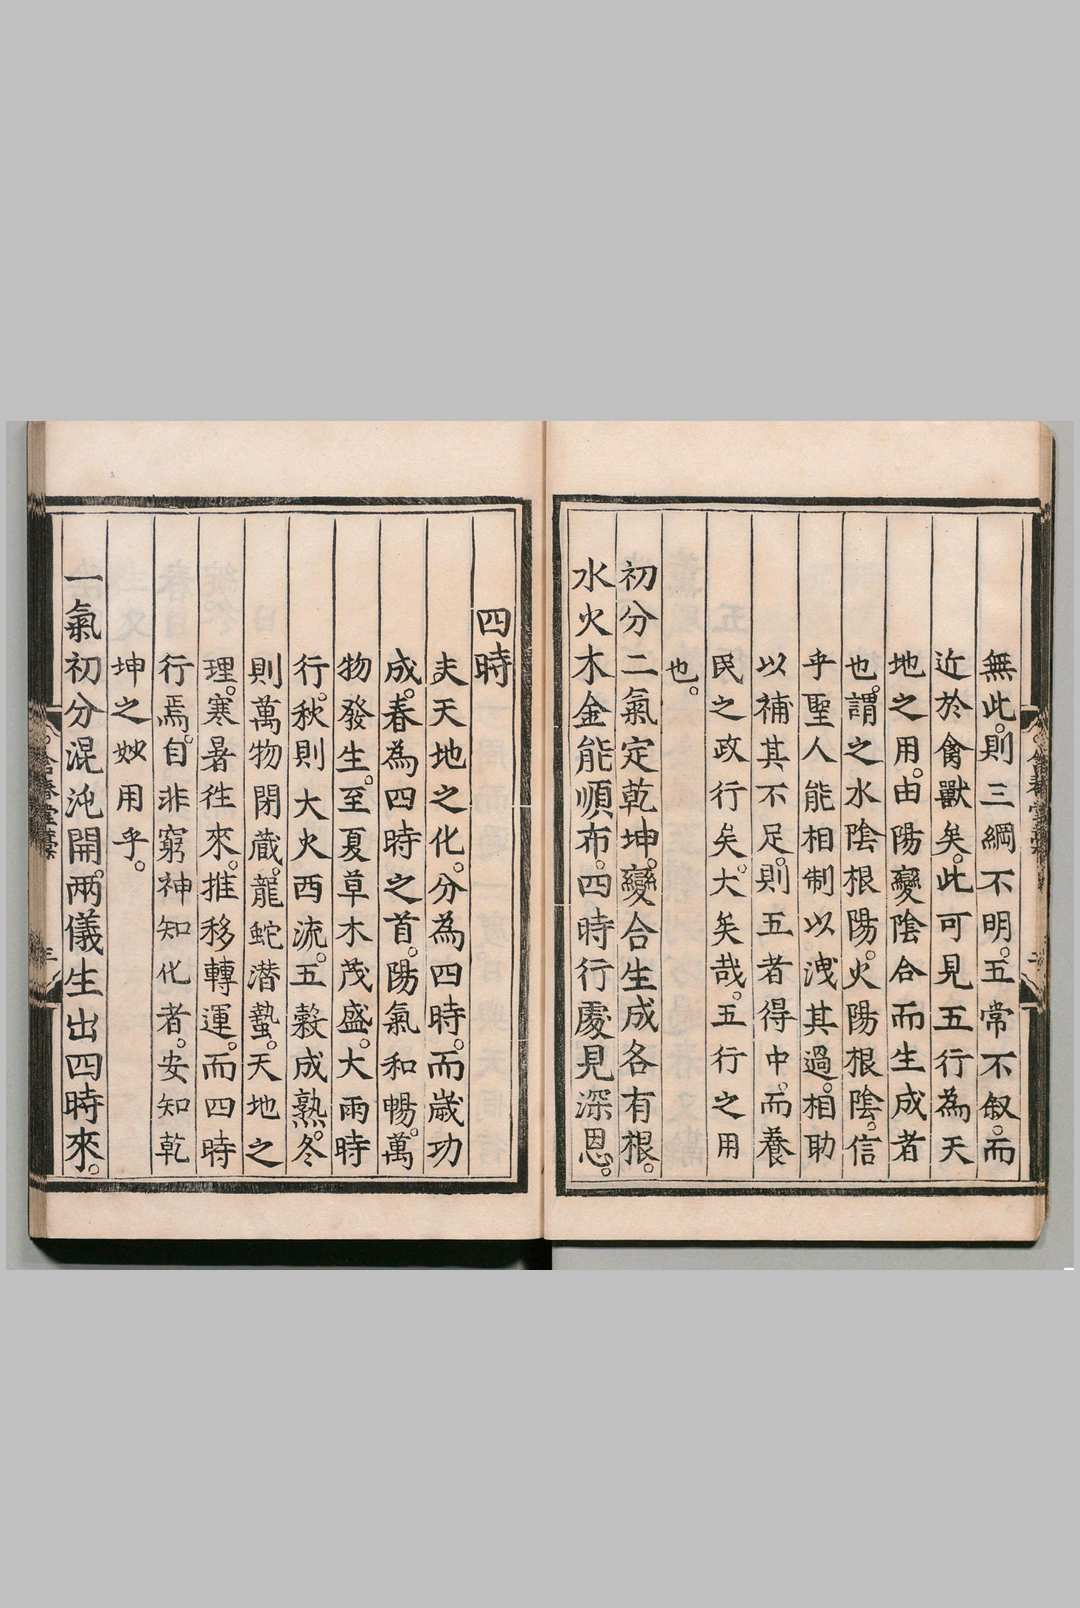 無此。則三綱不明。五常不叙。而
近於禽獸矣。此可見五行為天
地之用。由陽變陰合而生成者
也。謂之水陰根陽。火陽根陰。信
乎聖人能相制以洩其過。相助
以補其不足。則五者得中。而養
民之政行矣。大矣哉。五行之用
也。
初分二氣定乾坤。變合生成各有根。
水火木金能順布。四時行處見深恩。
四時
夫天地之化。分為四時。而歲功
成。春為四時之首。陽氣和暢。萬
物發生。至夏草木茂盛。大雨時
行。秋則大火西流。五穀成熟。冬
則萬物閉藏。龍蛇潛蟄。天地之
理。寒暑徃來。推移轉運。而四時
行焉。自非窮神知化者。安知乾
坤之妙用乎。
一氣初分混沌開。兩儀生出四時來。